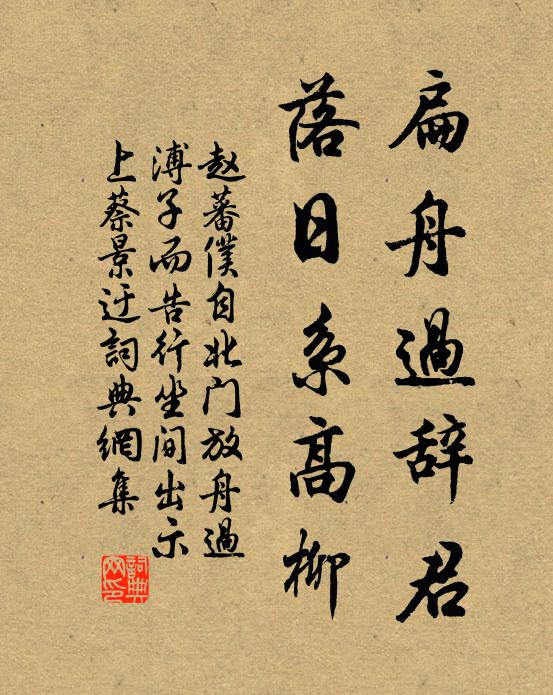 扁舟過辞君
落日系高柳
赵蕃僕自北门放舟過
溥子而告行坐间出示
上蔡景迂詞典網集
詞典
网印